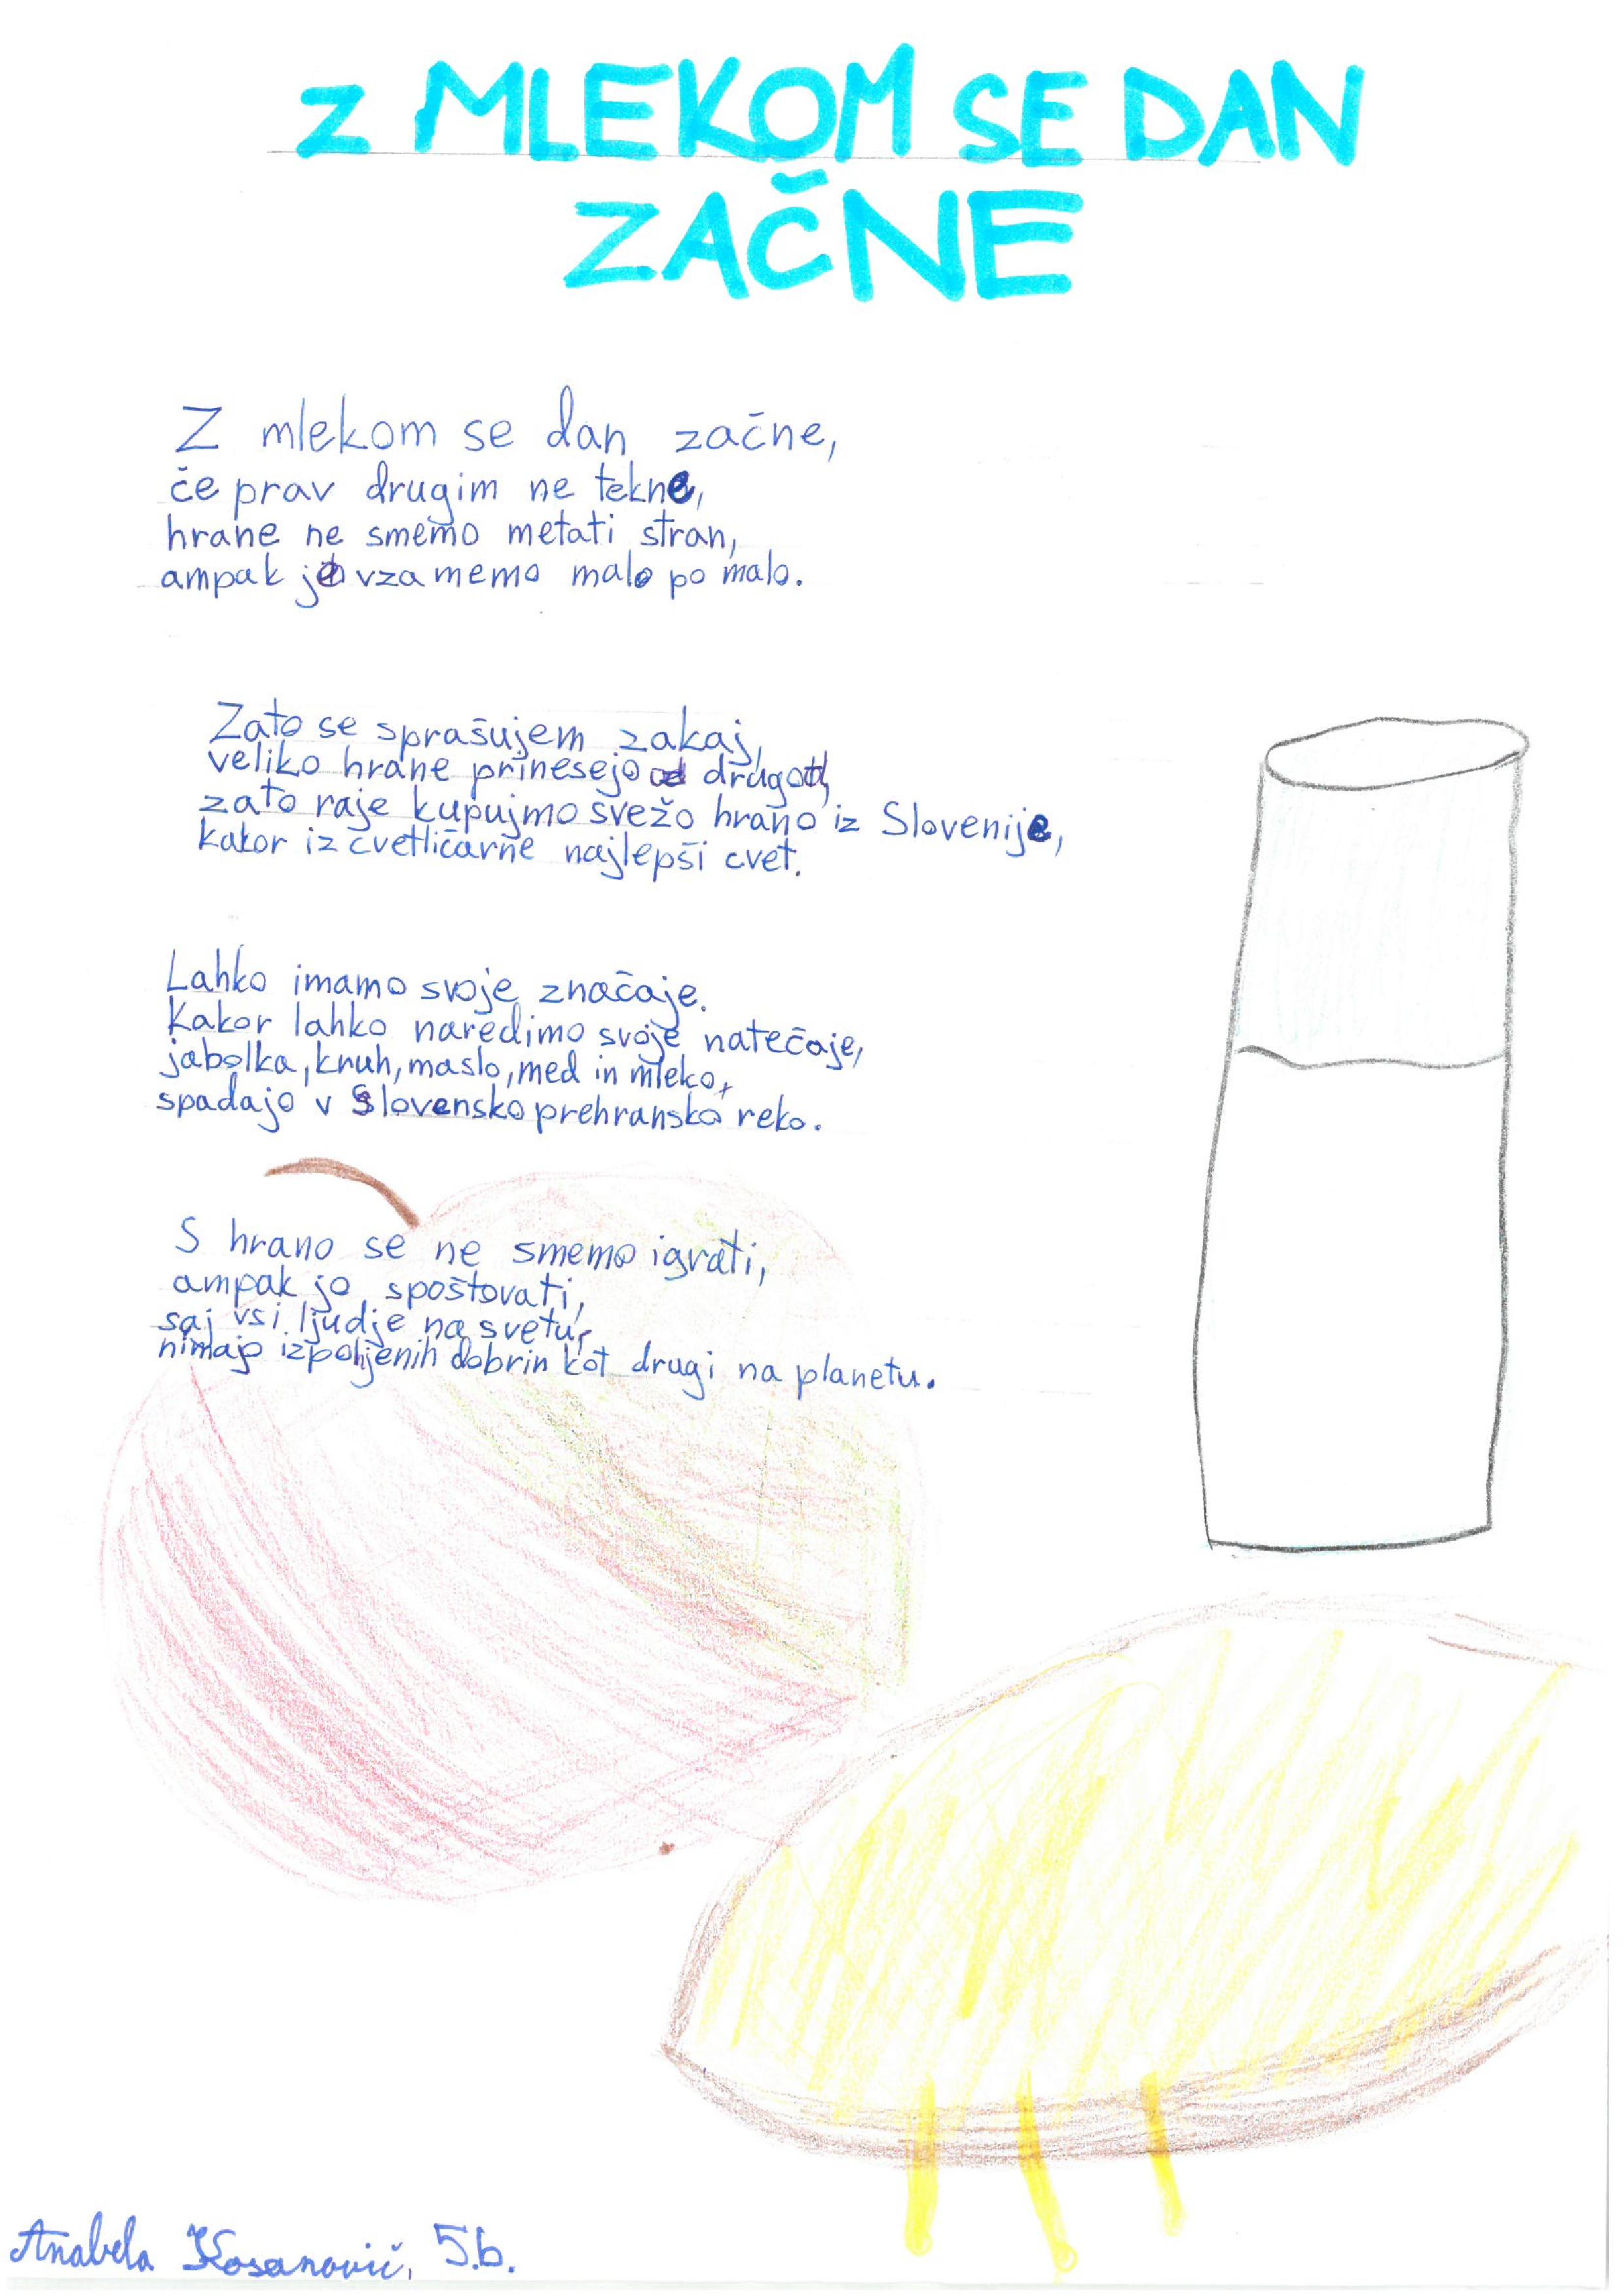 Z MLEKOM SE DAN
ZAČNE
Z mlekom se dan začne,
če prav drugim ne tekne,
hrane ne smemo metati stran,
ampak jo vzamemo malo po malo.
Zato se sprašujem zakaj,
veliko hrane prinesejo od drugod,
zato raje kupujmo svežo hrano iz Slovenije,
kakor iz cvetličarne najlepši cvet.
Lahko imamo svoje značaje.
Kakor lahko naredimo svoje natečaje,
jabolka, kruh, maslo, med in mleko,
spadajo v Slovensko prehransko reko.
S hrano se ne smemo igrati,
ampak jo spoštovati,
saj vsi ljudje na svetu,
nimajo izpoljenih dobrin kot drugi na planetu.
Anabela Kosanovič, 5.b.